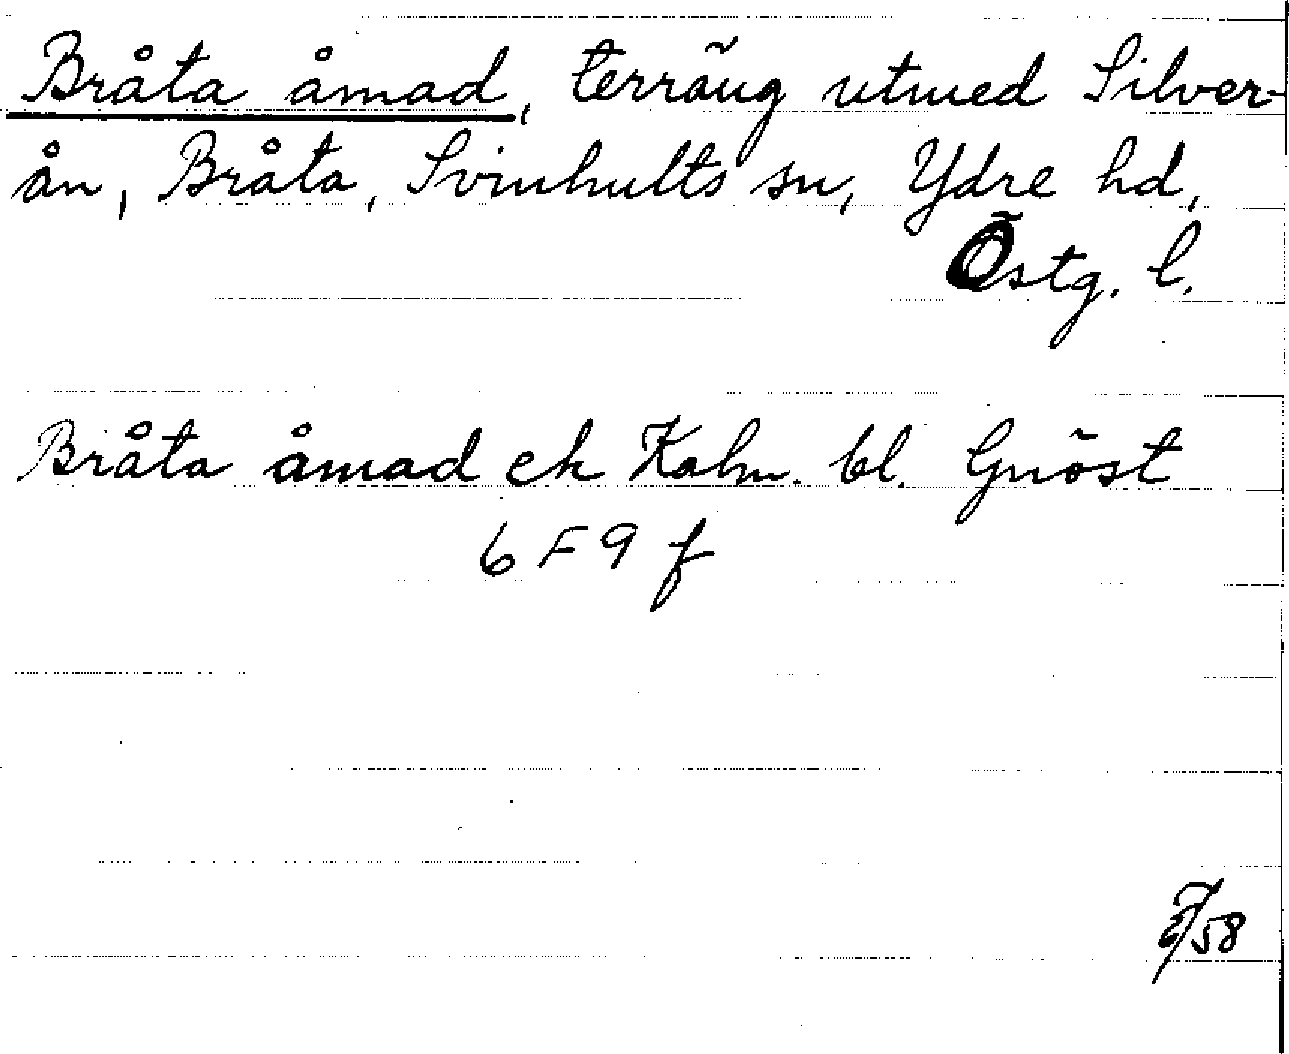 Bråta åmad, terräng utmed Silver-
ån, Bråta, Svinhults sn, Ydre hd,
Östg. l.
Bråta åmad ek Kalm. bl. Gnöst
6 F 9 f
/58